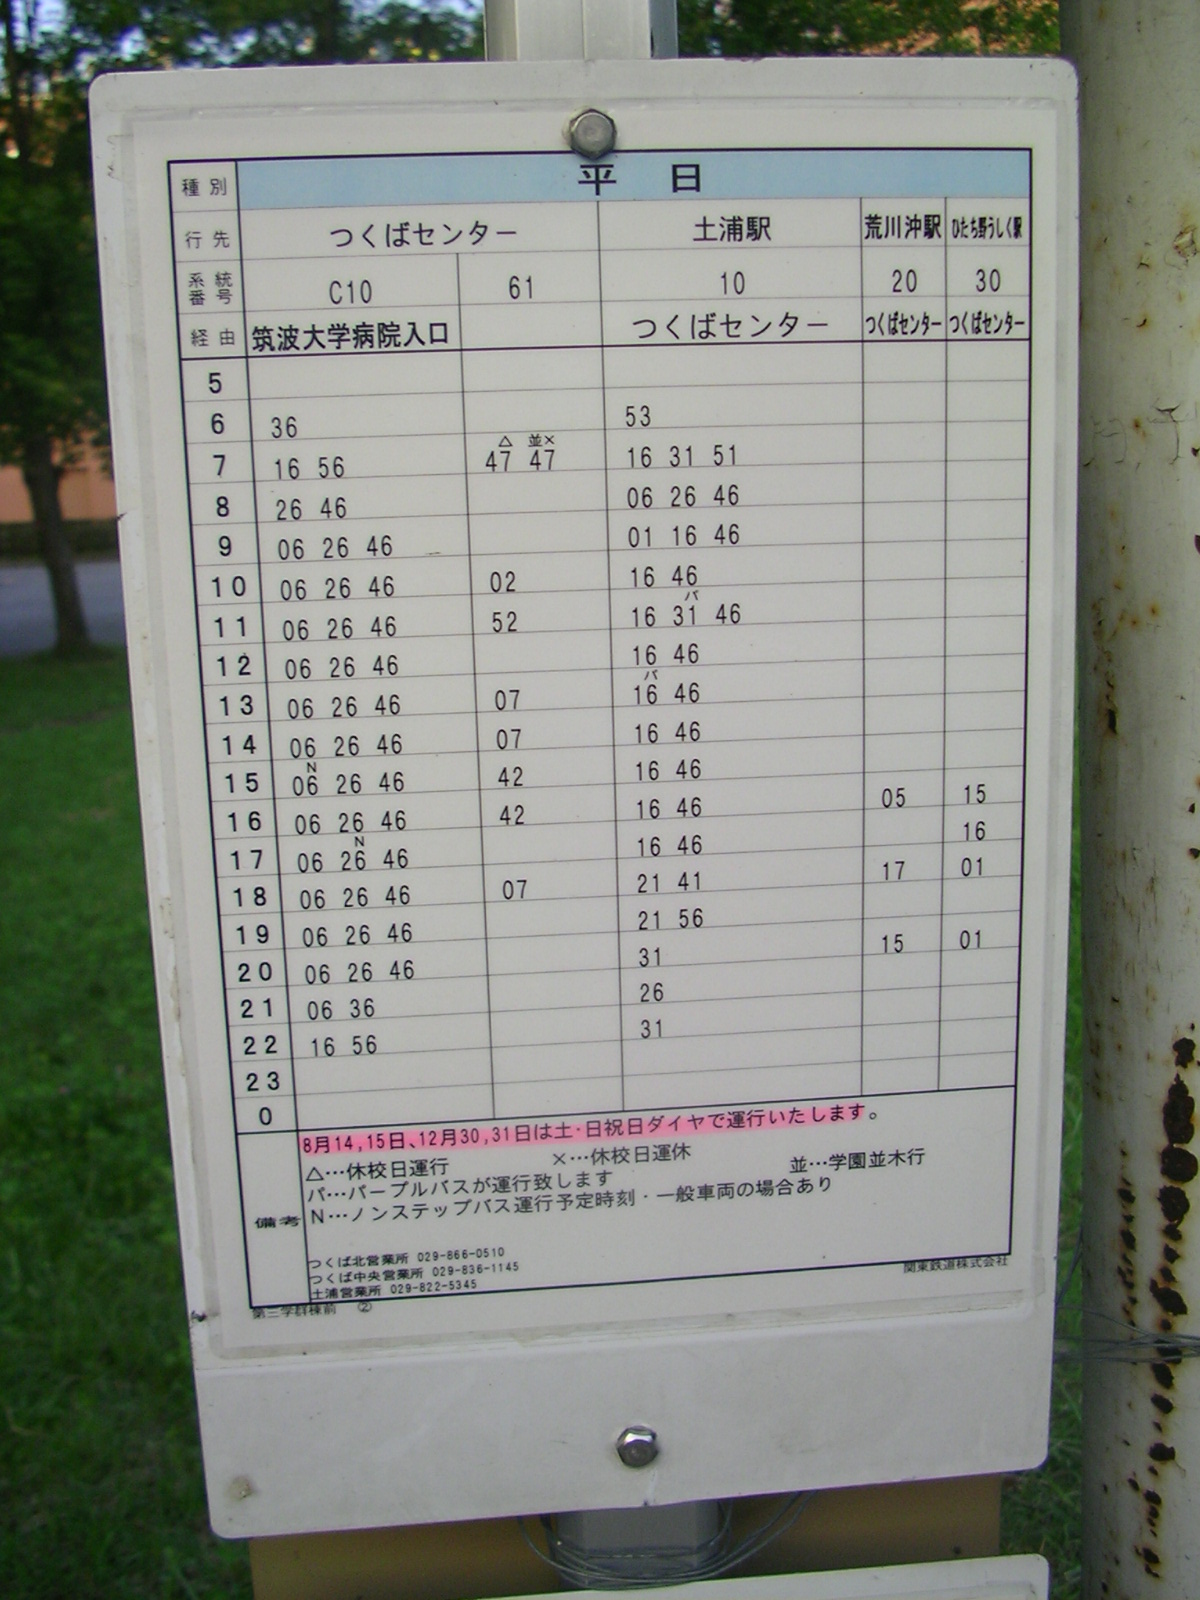 種別 平 日
行先 つくばセンター 土浦駅 荒川沖駅 ひたち野うしく駅
系統番号 C10 61 10 20 30
経由 筑波大学病院入口 つくばセンター つくばセンター つくばセンター
5
6 36 53
△ 並×
7 16 56 47 47 16 31 51
8 26 46 06 26 46
9 06 26 46 01 16 46
10 06 26 46 02 16 46
パ
11 06 26 46 52 16 31 46
12 06 26 46 16 46
パ
13 06 26 46 07 16 46
14 06 26 46 07 16 46
N
15 06 26 46 42 16 46
16 06 26 46 42 16 46 05 15
N
17 06 26 46 16 46 16
18 06 26 46 07 21 41 17 01
19 06 26 46 21 56
20 06 26 46 31 15 01
21 06 36 26
22 16 56 31
23
0
備考
8月14,15日、12月30,31日は土・日祝日ダイヤで運行いたします。
△…休校日運行 ×…休校日運休 並…学園並木行
パ…パープルバスが運行致します
N…ノンステップバス運行予定時刻・一般車両の場合あり
つくば北営業所 029-866-0510
つくば中央営業所 029-836-1145
土浦営業所 029-822-5345
関東鉄道株式会社
第三学群棟前 ②